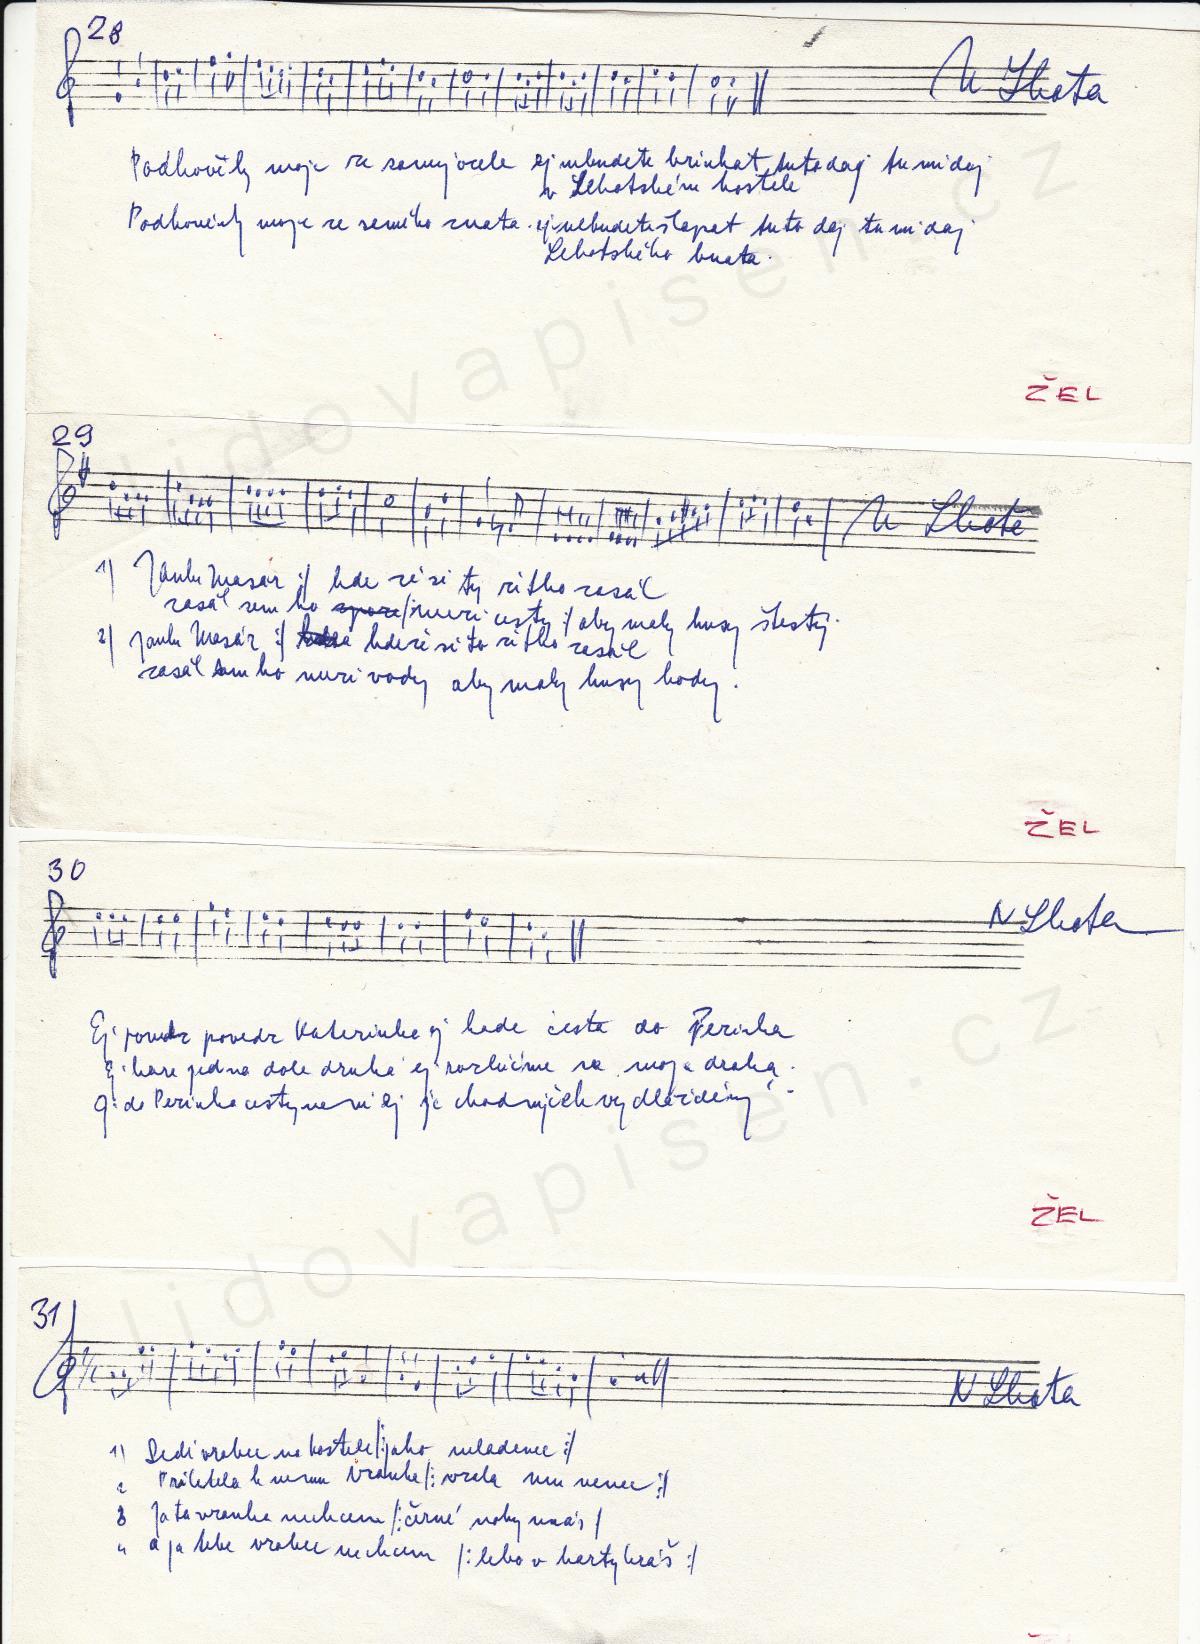 28
N Lhota
Podkověky moje ze samej ocele ej nebudete brinkat tuto daj tu mi daj
v Lehotském kostele
Podkověnky moje ze samého zlata ej nebudete šlapat tuto daj tu mi daj
Lehotského blata.
ŽEL
29
N Lhota
1) Janku Masár :/ kde ré si ty ritko zasál
zasál sem ho /: meri cesty :/ aby maly husy štestý.
2) Janku Masár :/ kde ré si to ritko zasál
zasál sem ho meri vody aby maly husy hody.
ŽEL
30
N Lhota
Ej povedz povedz Katerinka ej kade cesta do Perinka
Ej hore jedna dole druhá ej rozlúčíme sa moja drahá.
do Perinka cesty neni ej je chodníček vydlážděný
ŽEL
31
N Lhota
1) Sedí vrabec na kostele /: jako mladenec :/
2 Priletela k nemu vranka /: vzala mu venec :/
3 Ja ta vranka nechcem /: černé nohy máš /
4 a ja tebe vrabec nechcem /: lebo v karty hráš :/
lidovapisen.cz
lidovapisen.cz